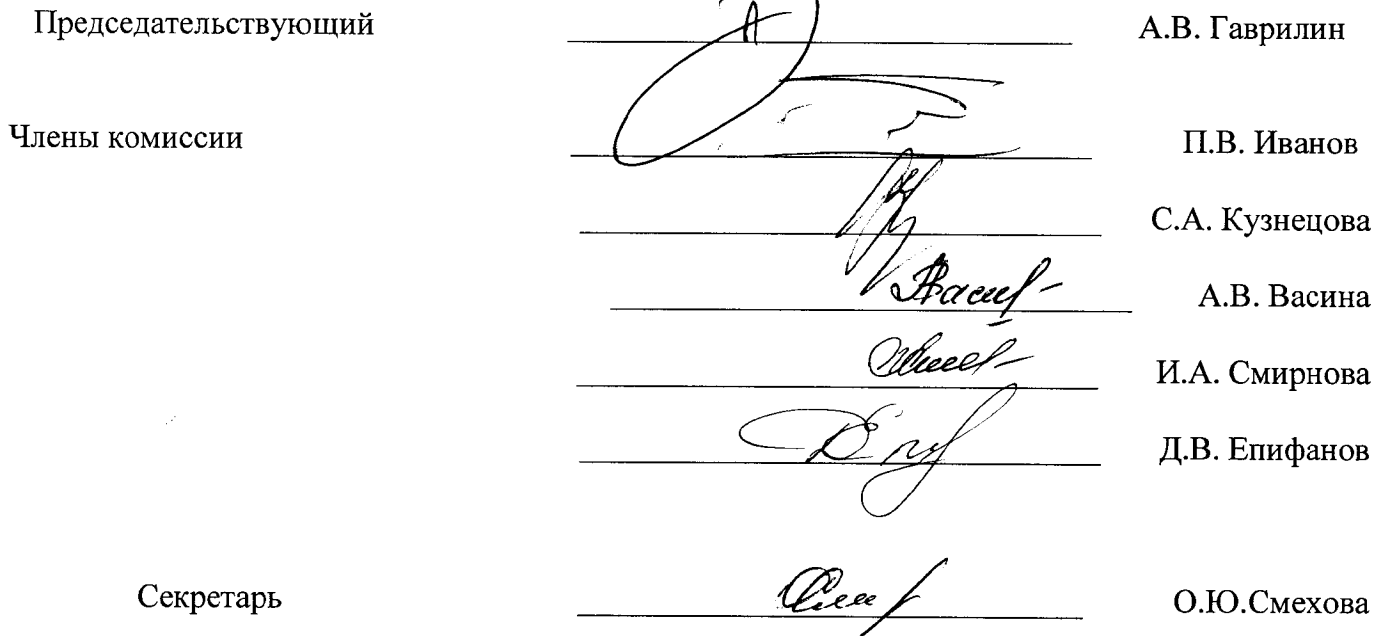 Председательствующий А.В. Гаврилин
Члены комиссии П.В. Иванов
С.А. Кузнецова
А.В. Васина
И.А. Смирнова
Д.В. Епифанов
Секретарь О.Ю.Смехова